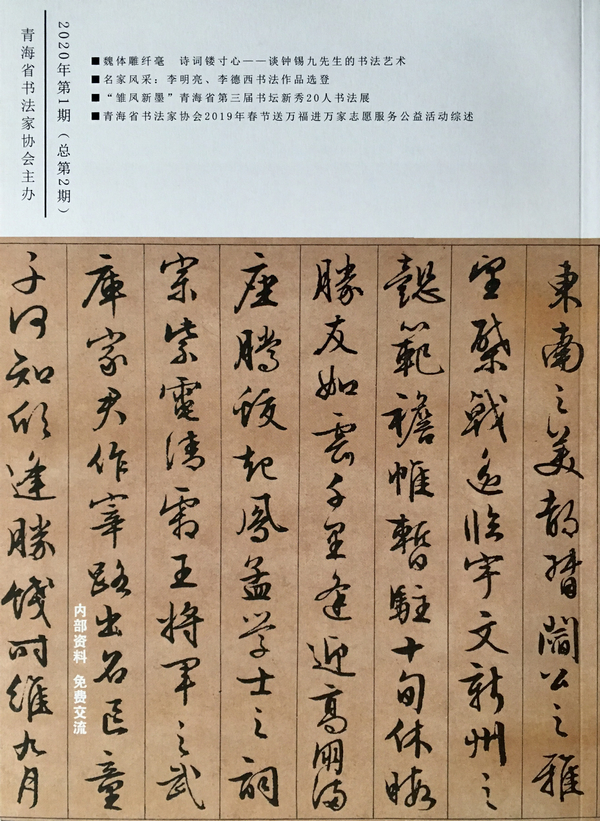 青海省书法家协会主办
2020年第1期（总第2期）
■魏体雕纤毫　诗词镂寸心——谈钟锡九先生的书法艺术
■名家风采：李明亮、李德西书法作品选登
■“雏凤新墨”青海省第三届书坛新秀20人书法展
■青海省书法家协会2019年春节送万福进万家志愿服务公益活动综述
東南之美都督閻公之雅
望棨戟遥临宇文新州之
懿範襜帷暫駐十旬休暇
勝友如雲千里逢迎高朋满
座騰蛟起鳳孟学士之詞
宗紫電清霜王将军之武
庫家君作宰路出名区童
子何知躬逢勝餞时維九月
内部资料　免费交流